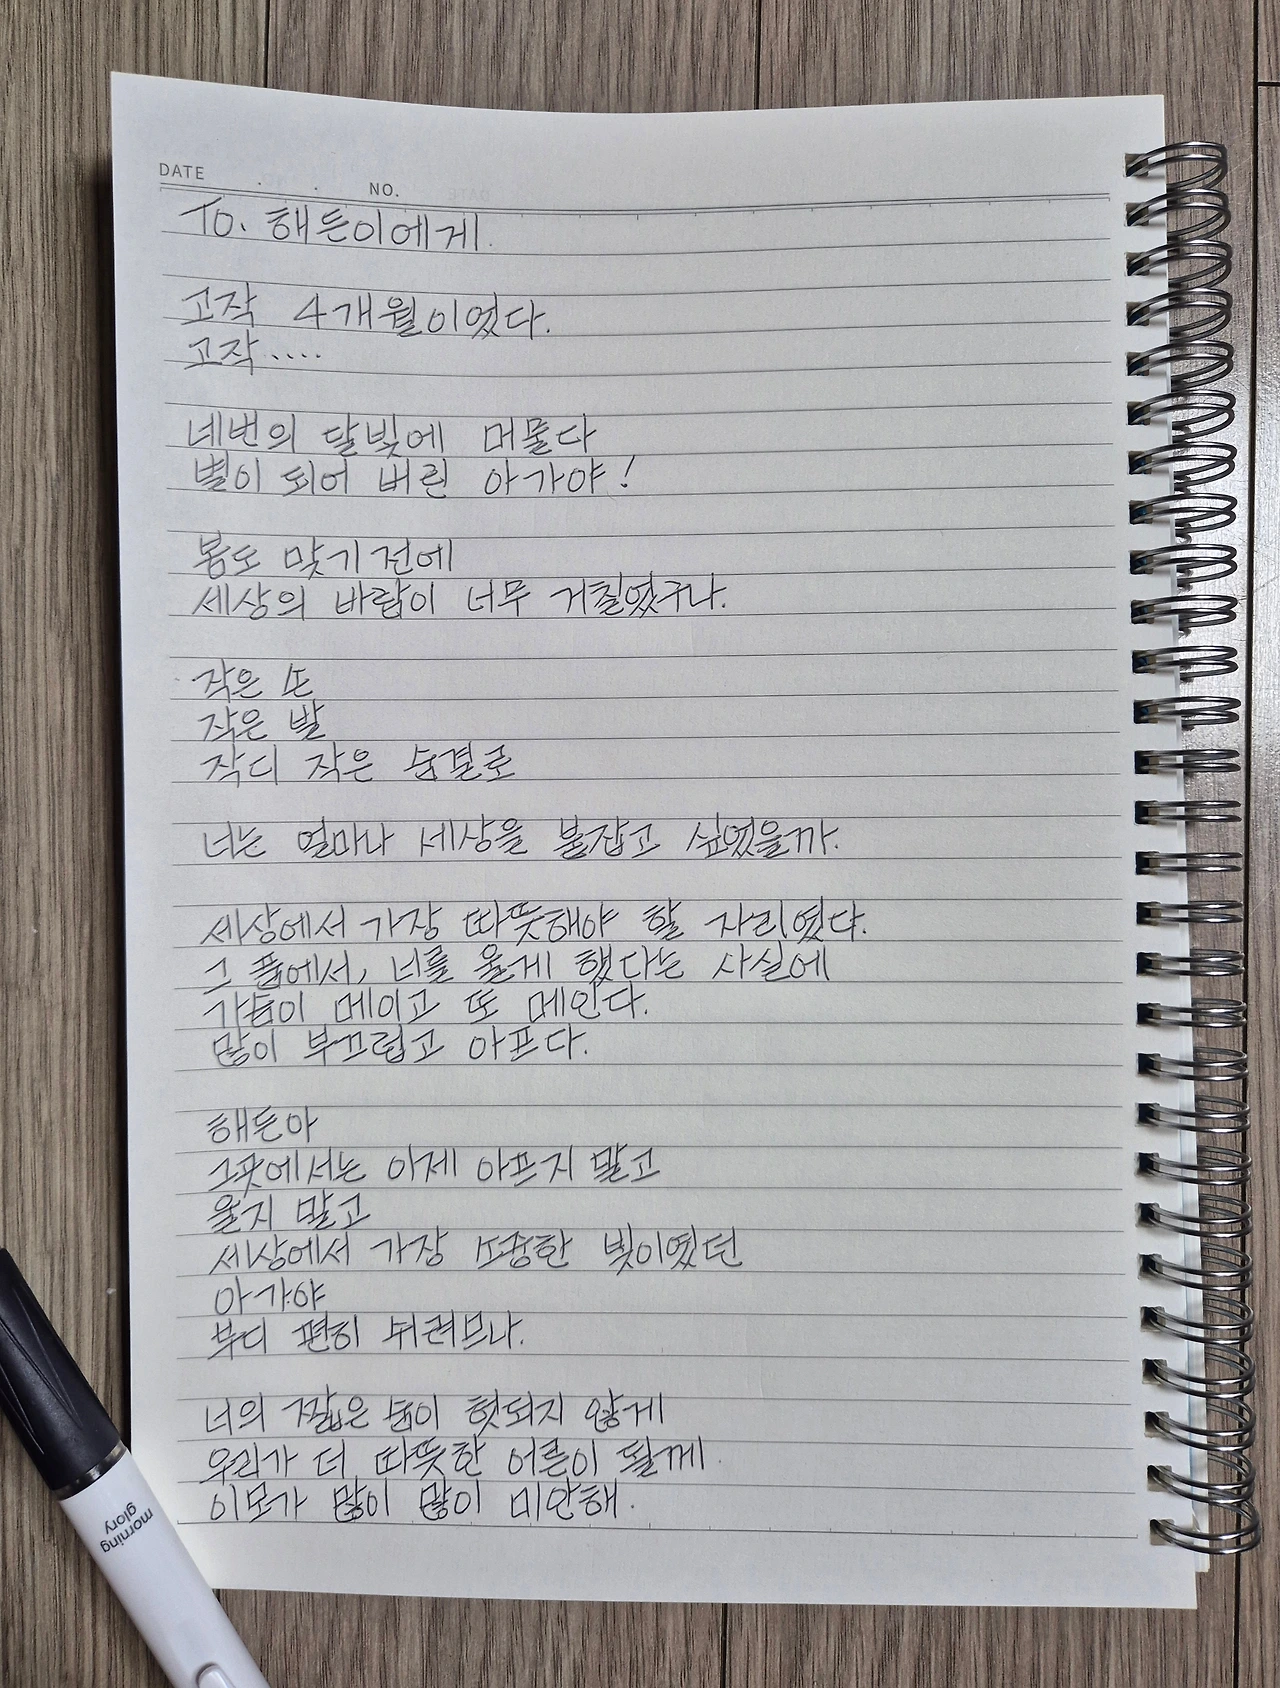 DATE . . NO.
To. 해든이에게.
고작 4개월이었다.
고작....
네번의 달빛에 머물다
별이 되어 버린 아가야!
봄도 맞기 전에
세상의 바람이 너무 거칠었구나.
작은 손
작은 발
작디 작은 숨결로
너는 얼마나 세상을 붙잡고 싶었을까.
세상에서 가장 따뜻해야 할 자리였다.
그 품에서, 너를 울게 했다는 사실에
가슴이 메이고 또 메인다.
많이 부끄럽고 아프다.
해든아
그곳에서는 이제 아프지 말고
울지 말고
세상에서 가장 소중한 빛이였던
아가야
부디 편히 쉬려므나.
너의 짧은 숨이 헛되지 않게
우리가 더 따뜻한 어른이 될께.
이모가 많이 많이 미안해.
morning
glory